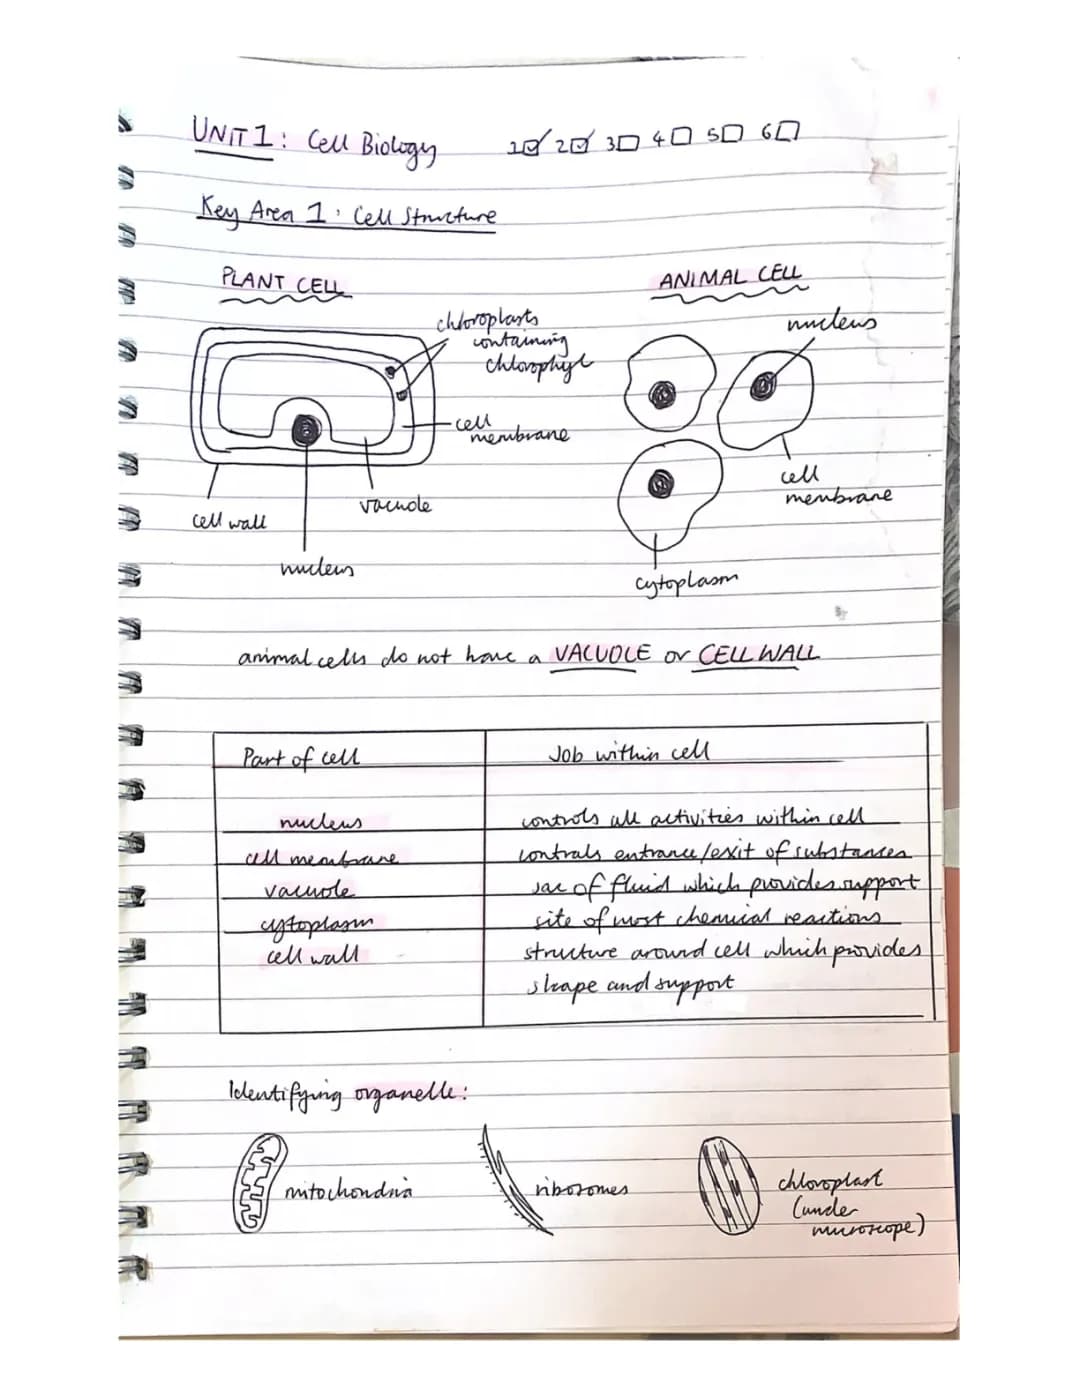 UNIT 1: Cell Biology 1☑ 2☑ 3☐ 4☐ 5☐ 6☐
Key Area 1: Cell Structure
PLANT CELL
chloroplasts
containing
chlorophyl
cell
membrane
vacuole
cell wall
nucleus
ANIMAL CELL
nucleus
cell
membrane
cytoplasm
animal cells do not have a VACUOLE or CELL WALL
Part of cell Job within cell
nucleus controls all activities within cell
cell membrane controls entrance/exit of substances
vacuole sac of fluid which provides support
cytoplasm site of most chemical reactions
cell wall structure around cell which provides
shape and support
Identifying organelle:
mitochondria
ribosomes
chloroplast
(under
microscope)